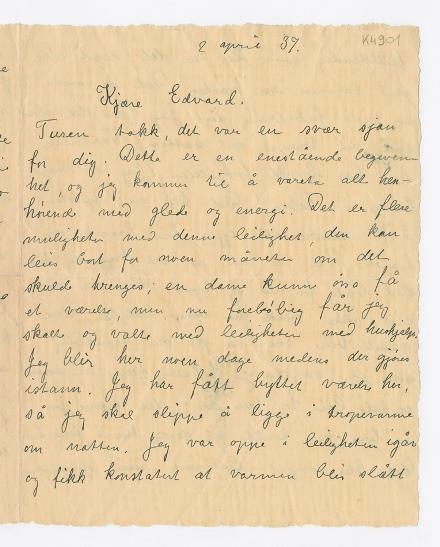 2 april 37.
K4901
Kjære Edvard.
Tusen takk, det var en svær sjau
for dig. Dette er en enestående begiven-
het, og jeg kommer til å vareta alt hen-
hørende med glede og energi. Det er flere
muligheter med denne leilighet, den kan
leies bort for noen måneter om det
skulde trenges; en dame kunne også få
et værelse, men nu foreløbig får jeg
skalte og valte med leiligheten med hushjelp.
Jeg blir her noen dage medens der gjøres
istann. Jeg har fått byttet værelse her,
så jeg skal slippe å ligge i tropevarme
om natten. Jeg var oppe i leiligheten igår
og fikk konstatert at varmen blir slått